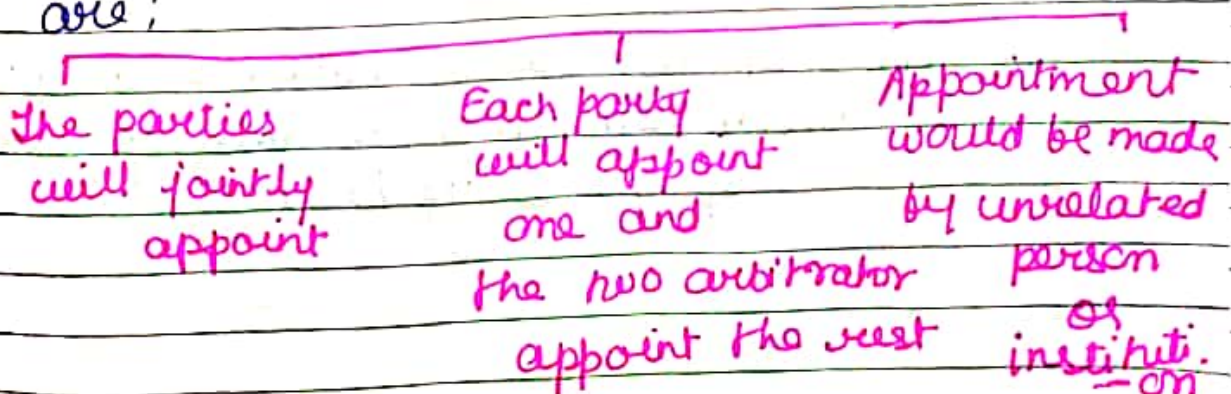 are;
The parties
will jointly
appoint
Each party
will appoint
one and
the two arbitrator
appoint the rest
Appointment
would be made
by unrelated
person
or
instituti.
-on